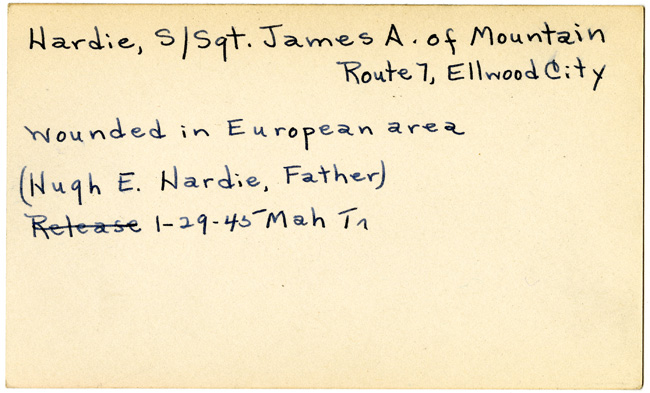 Hardie, S/Sgt. James A. of Mountain
Route 7, Ellwood City
Wounded in European area
(Hugh E. Hardie, Father)
Release 1-29-45 Mah Tr